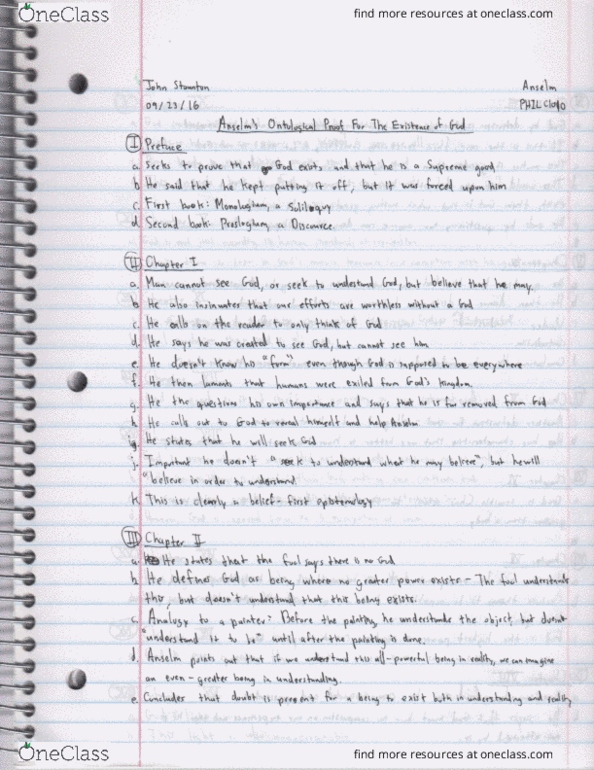 OneClass
find more resources at oneclass.com
John Staunton
Anselm
09/23/16
PHIL C1040
Anselm's Ontological Proof For The Existence of God
I Preface
a. Seeks to prove that God exists and that he is a Supreme good
b. He said that he kept putting it off, but it was forced upon him
c. First book: Monologium, a Soliloquy
d. Second book: Proslogium, a Discource
II Chapter I
a. Man cannot see God, or seek to understand God, but believe that he may.
b. He also insinuates that our efforts are worthless without a God
c. He calls on the reader to only think of God
d. He says he was created to see God, but cannot see him
e. He doesn't know his "form" even though God is supposed to be everywhere
f. He then laments that humans were exiled from God's kingdom.
g. He the questions his own importance and says that he is far removed from God
h. He calls out to God to reveal himself and help Anselm.
i. He states that he will seek God
j. Important he doesn't "seek to understand what he may believe", but he will
"believe in order to understand
k. This is clearly a belief-first epistemology
III Chapter II
a. He states that the fool says there is no God
b. He defines God as being where no greater power exists - The fool understands
this, but doesn't understand that this being exists.
c. Analogy to a painter: Before the painting, he understands the object, but doesn't
"understand it to be" until after the painting is done.
d. Anselm points out that if we understand this all-powerful being in reality, we can imagine
an even-greater being in understanding.
e. Concludes that doubt is present for a being to exist both in understanding and reality
OneClass
find more resources at oneclass.com